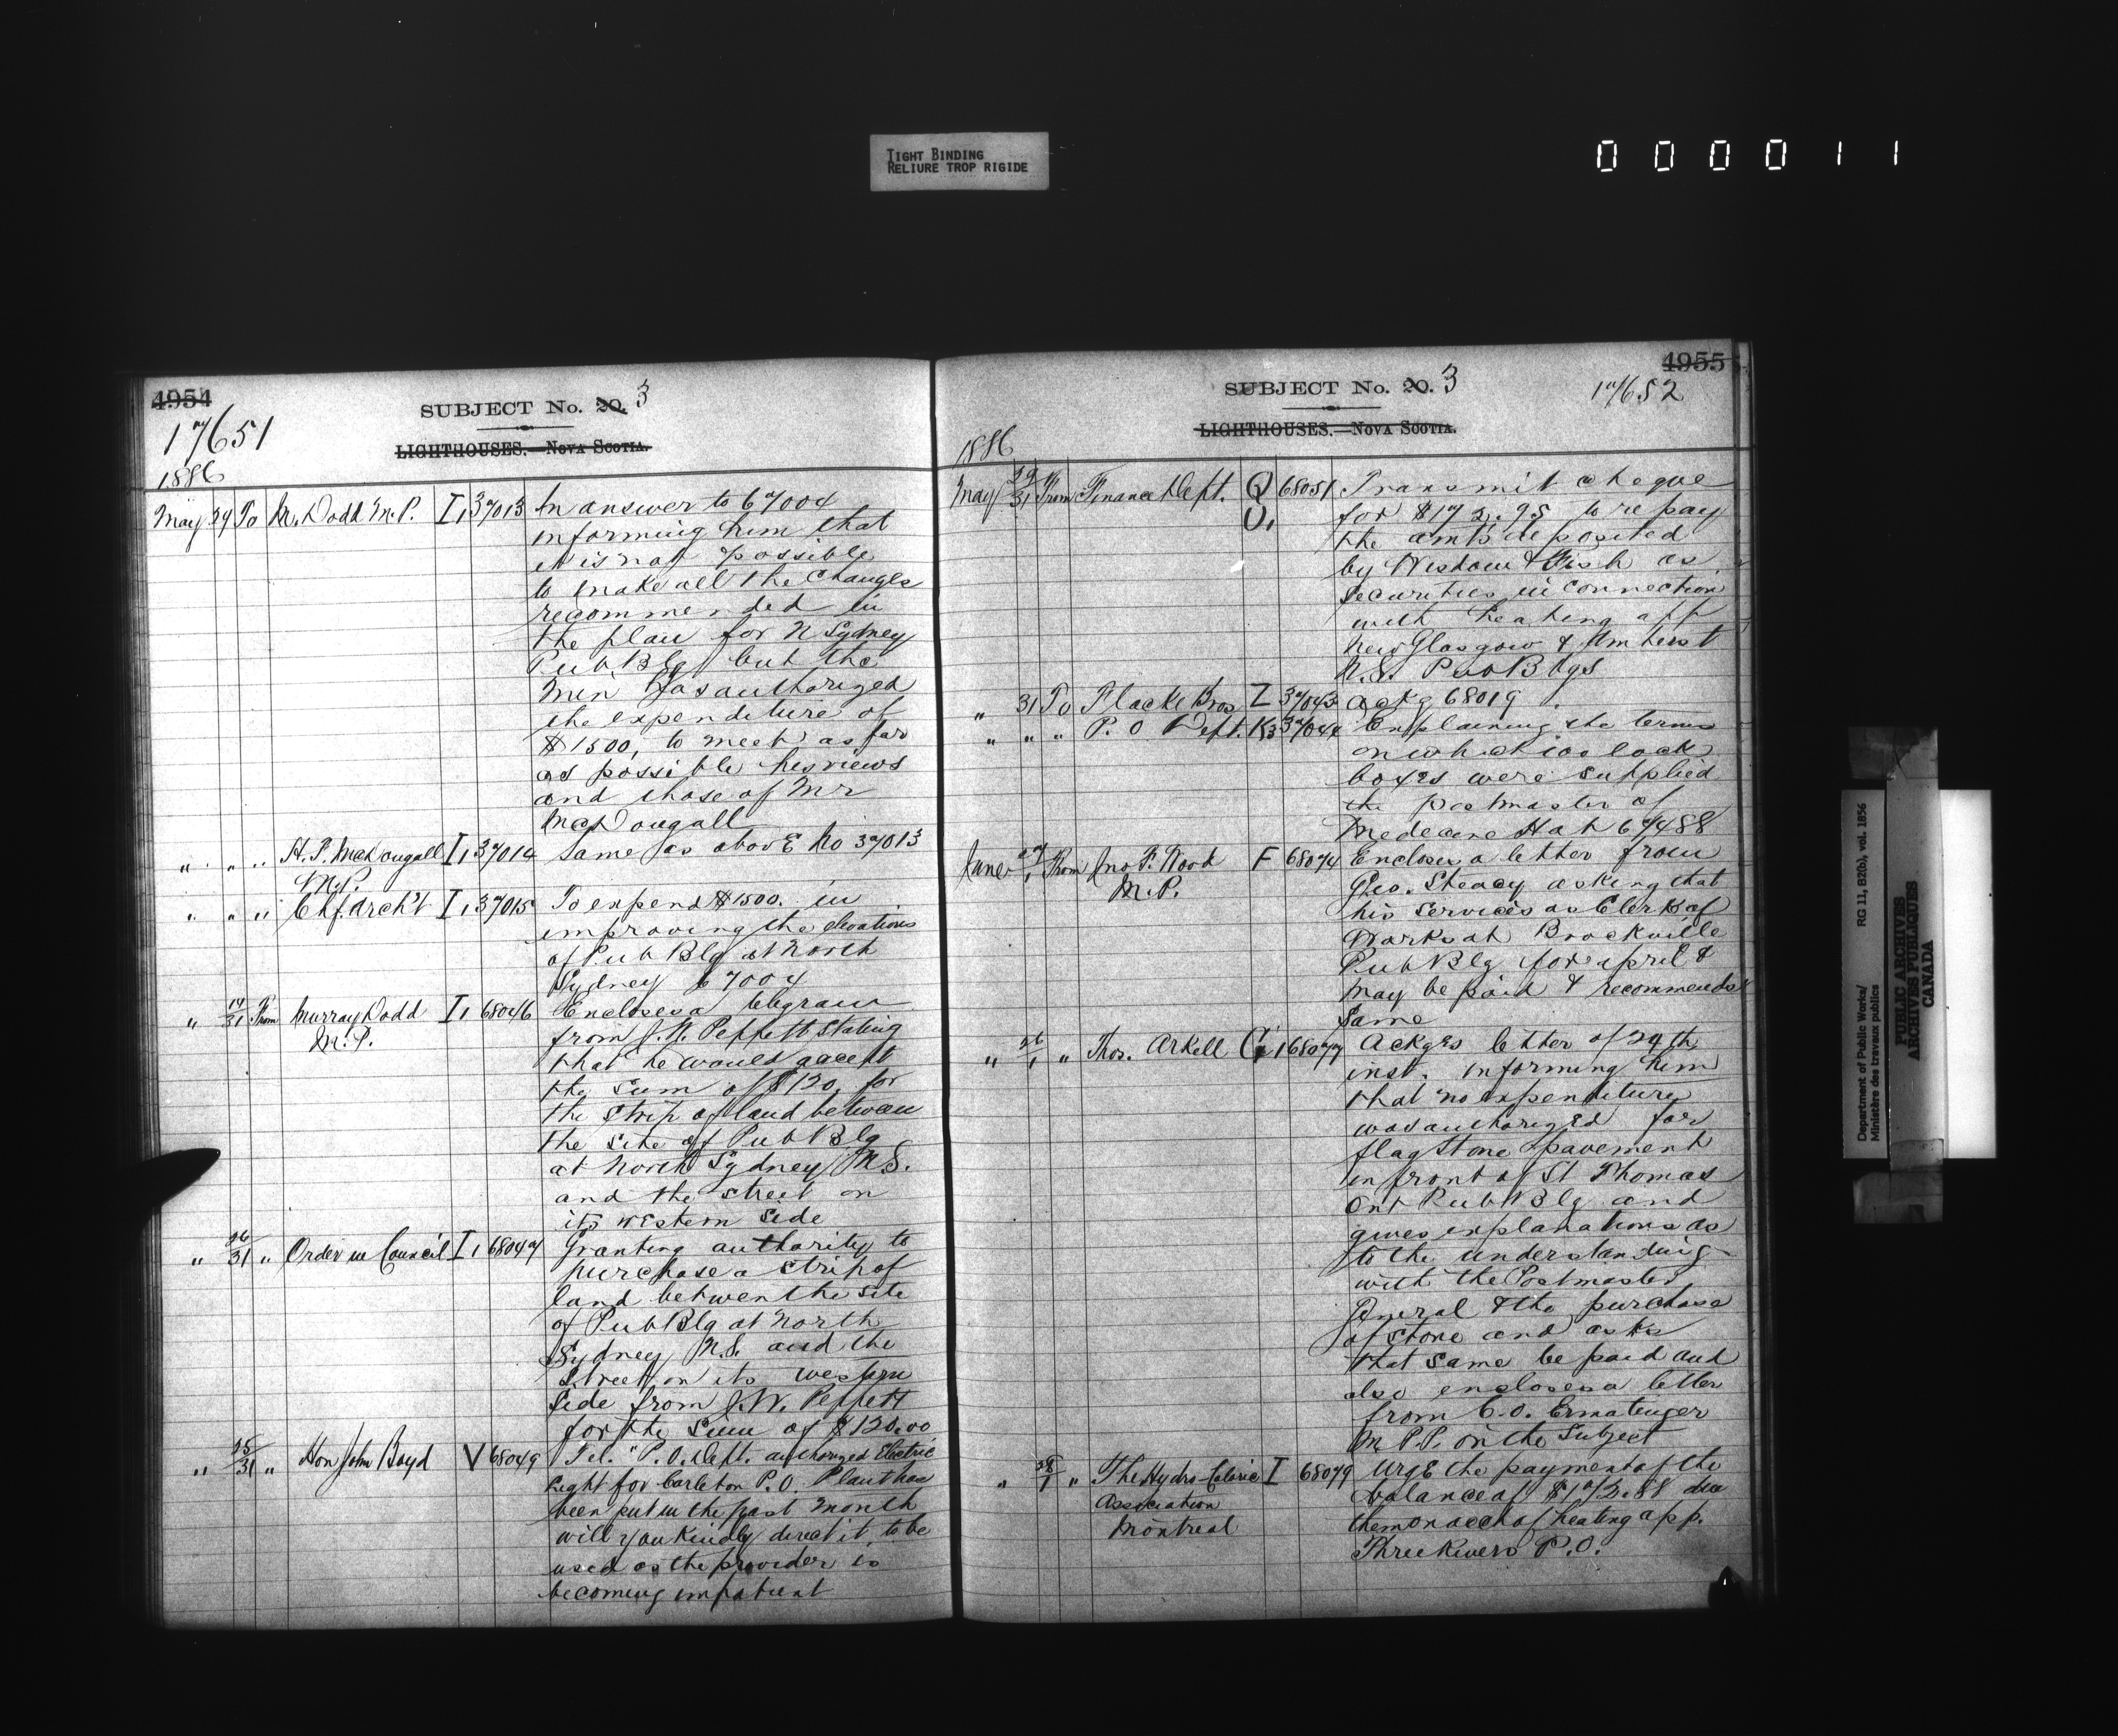 TIGHT BINDING
RELIURE TROP RIGIDE
0 0 0 0 1 1
4954
17651
SUBJECT No. 20. 3
LIGHTHOUSES.—NOVA SCOTIA.
1886
May 29 To M. Dodd M.P. I, 37013 In answer to 67004
informing him that
it is not possible
to make all the changes
recommended in
the plan for N Sydney
Pub Blg but the
Min has authorized
the expenditure of
$1500, to meet as far
as possible his views
and those of Mr
McDougall
" " " H. F. McDougall I, 37014 Same as above No 37013
M.P.
" " " Chf. Arch't I, 37015 To expend $1500. in
improving the elevations
of Pub Blg at North
Sydney 67004
" 31 From Murray Dodd I, 68046 Encloses a telegram
M.P. from J. W. Peppett stating
that he would accept
the sum of $120, for
the strip of land between
the site of Pub Blg
at North Sydney N.S.
and the street on
its western side
" 26/31 " Order in Council I, 68047 Granting authority to
purchase a strip of
land between the site
of Pub Blg at North
Sydney N.S. and the
Street on its western
side from J. W. Peppett
for the sum of $120.00
" 25/31 " Hon John Boyd V 68049 Tel. "P.O. Dept. authorized Electric
Light for Carleton P.O. Plant has
been put in the past month
will you kindly direct it to be
used as the provider is
becoming impatient
4955
SUBJECT No. 20. 3
17652
LIGHTHOUSES.—NOVA SCOTIA.
1886
May 29/31 From Finance Dept. Q 68051 Transmit cheque
U, for $172.95 to repay
the amts deposited
by Wisdom & Fish as
securities in connection
with heating app
New Glasgow & Amherst
N.S. Pub Blgs
" 31 To Flacke Bros I 37043 Ackg 68019
" " " P. O Dept. K3 37044 Explaining the terms
on which 100 lock
boxes were supplied
the postmaster of
Medecine Hat 67488
June 27/1 From Jno F. Wood F 68074 Encloses a letter from
M.P. Geo. Steacy asking that
his services as Clerk of
Works at Brockville
Pub Blg for april &
May be paid & recommends
same
" 26/1 " Thos. Arkell G 1 68077 Ackges letter of 24th
inst. informing him
that no expenditure
was authorized for
flagstone pavement
in front of St Thomas
Ont Pub Blg and
gives explanations as
to the understanding
with the Postmaster
General & the purchase
of stone and asks
that same be paid and
also encloses a letter
from C.O. Ermatinger
M P.P. on the subject
" 28/1 " The Hydro-Caloric I 68079 Urge the payment of the
Association balance of $172.88 due
Montreal them on acct of heating app.
Three Rivers P.O.
Department of Public Works/
Ministère des travaux publics
RG 11, B2(b), vol. 1856
PUBLIC ARCHIVES
ARCHIVES PUBLIQUES
CANADA